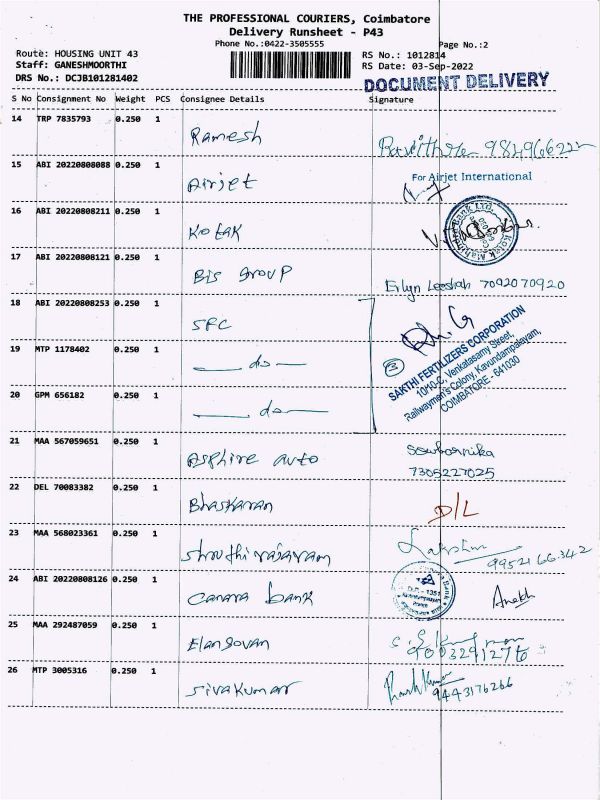 THE PROFESSIONAL COURIERS, Coimbatore
Delivery Runsheet - P43
Phone No.:0422-3505555
Page No.:2
Route: HOUSING UNIT 43
RS No.: 1012814
Staff: GANESHMOORTHI
RS Date: 03-Sep-2022
DRS No.: DCJB101281402
DOCUMENT DELIVERY
S No Consignment No Weight PCS Consignee Details Signature
14 TRP 7835793 0.250 1
Ramesh
15 ABI 20220808088 0.250 1
For Airjet International
Airjet
16 ABI 20220808211 0.250 1
Kotak Mahindra Bank Ltd.
Kotak
17 ABI 20220808121 0.250 1
BIS Group 7092070920
18 ABI 20220808253 0.250 1
SFC
19 MTP 1178402 0.250 1
do
3
SAKTHI FERTILIZERS CORPORATION
10/10-C, Venkatasamy Street,
Railwaymen's Colony, Kavundampalayam,
COIMBATORE - 641030
20 GPM 656182 0.250 1
do
21 MAA 567059651 0.250 1
Sowbarnika
Asphire auto
7305227025
22 DEL 70083382 0.250 1
Bhaskaran D/L
23 MAA 568023361 0.250 1
Shruthi rajaram
9952166342
24 ABI 20220808126 0.250 1
Canara bank
25 MAA 292487059 0.250 1
Elangovan
9003291276
26 MTP 3005316 0.250 1
Sivakumar
9443176266